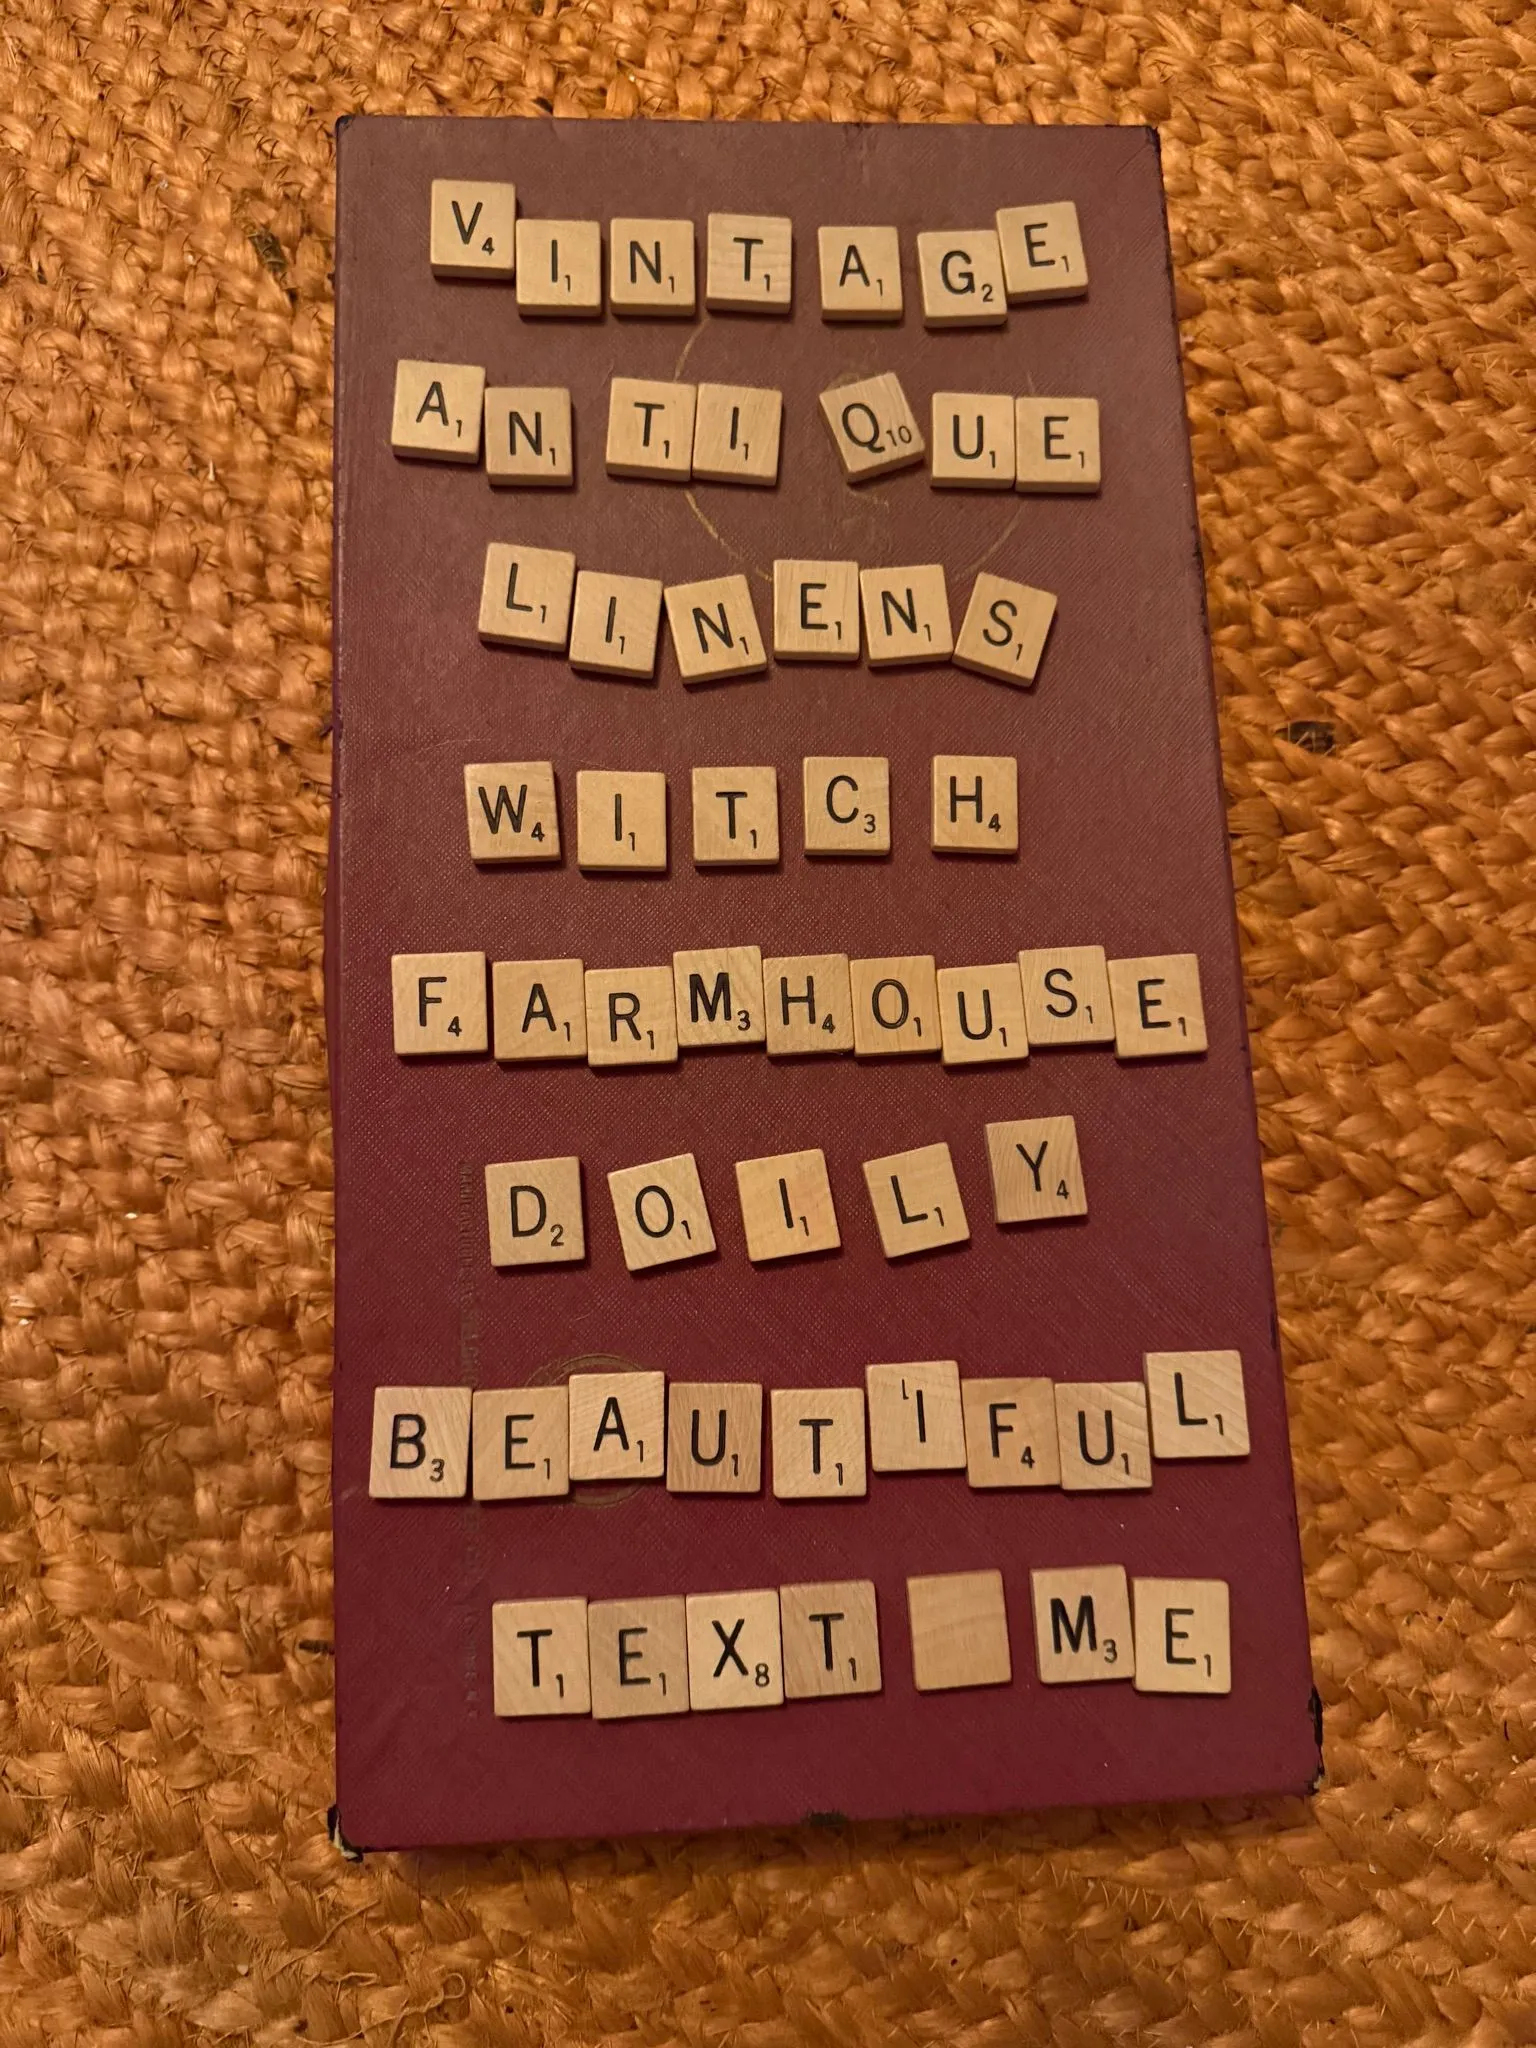 VINTAGE
ANTIQUE
LINENS
WITCH
FARMHOUSE
DOILY
BEAUTIFUL
TEXT ME